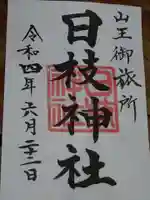 山王御旅所
日枝神社
令和四年六月二十二日